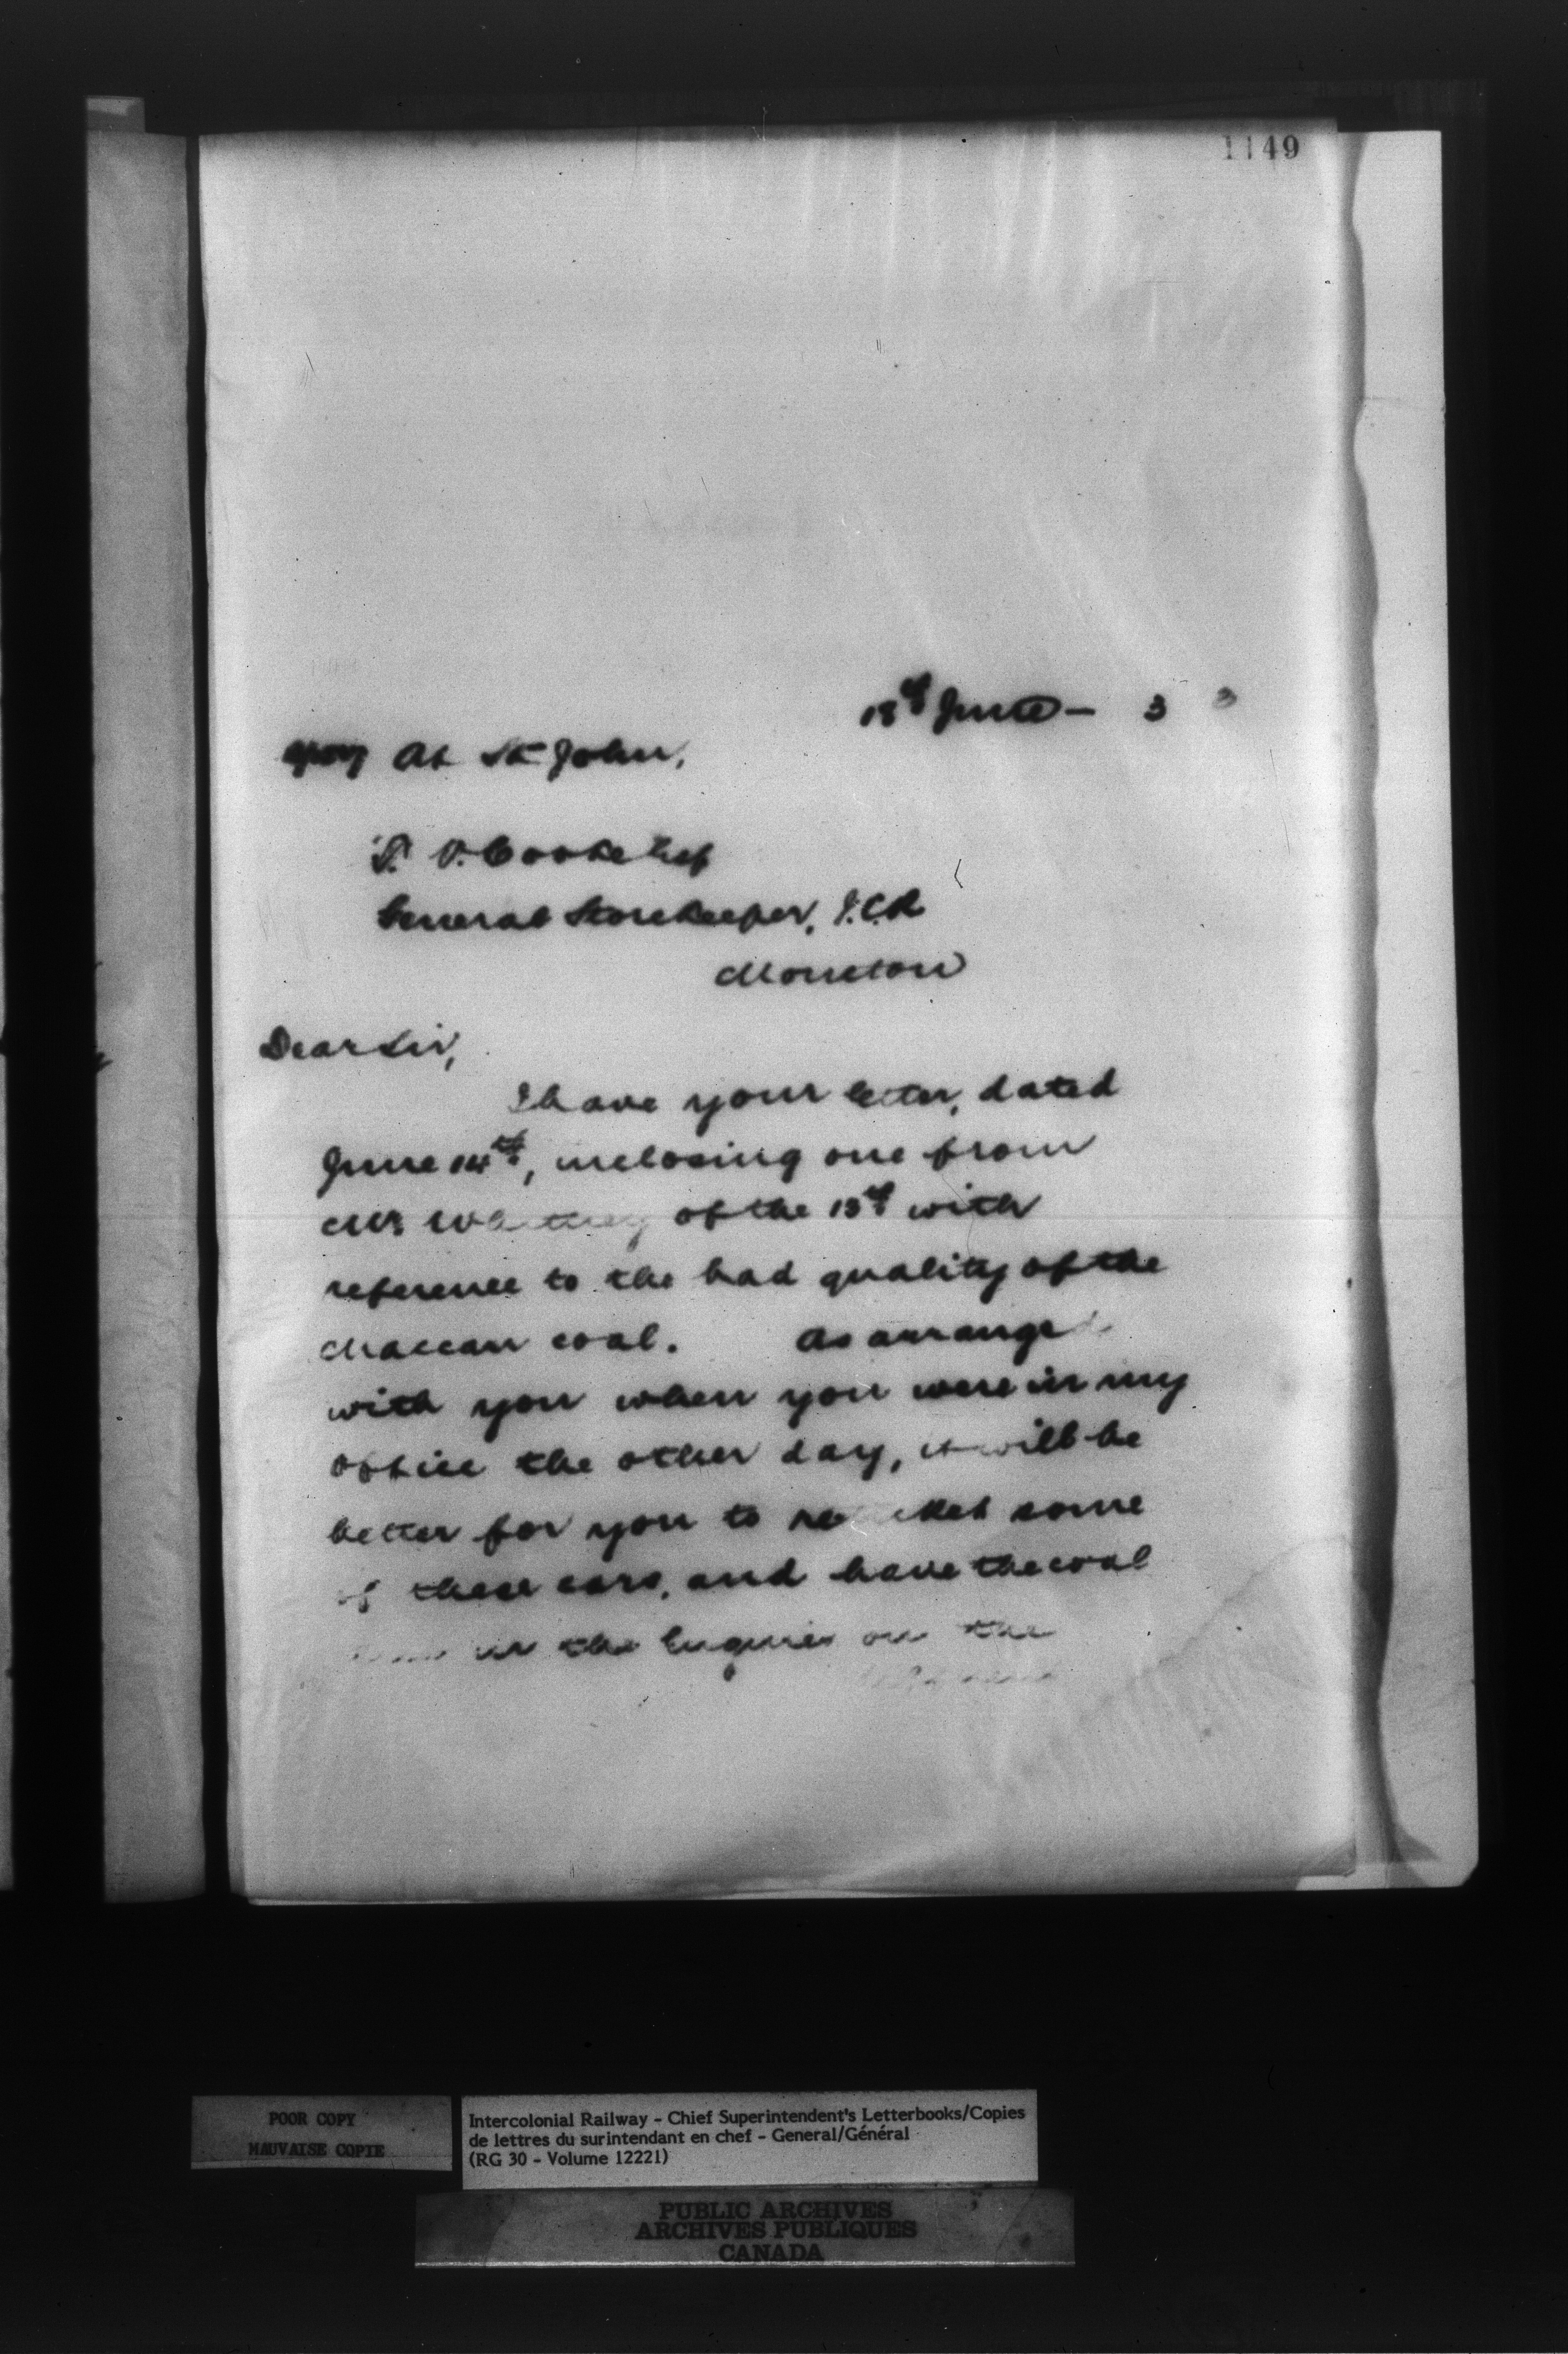 1149
18th June - 3 3
At St John,
T. V. Cooke Esq
General Storekeeper, I.C.R
Moncton
Dear Sir,
I have your letter, dated
June 14th, inclosing one from
Mr Whitney of the 13th with
reference to the bad quality of the
Maccan coal. As arranged
with you when you were in my
office the other day, it will be
better for you to some
of these cars, and have the coal
in the Engines on the
POOR COPY
MAUVAISE COPIE
Intercolonial Railway - Chief Superintendent's Letterbooks/Copies
de lettres du surintendant en chef - General/Général
(RG 30 - Volume 12221)
PUBLIC ARCHIVES
ARCHIVES PUBLIQUES
CANADA